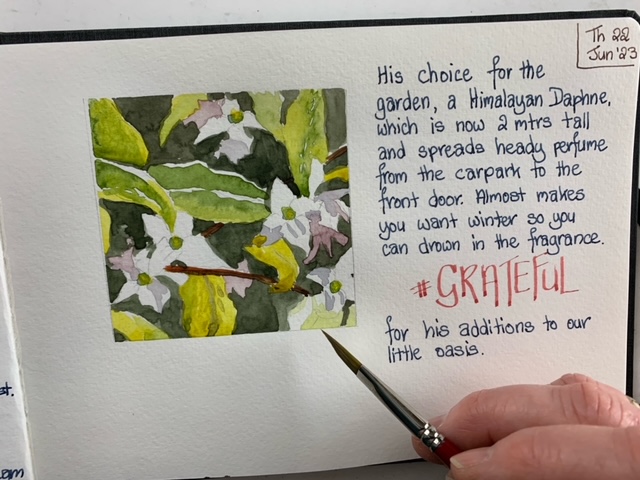 Th 22
Jun '23
His choice for the
garden, a Himalayan Daphne,
which is now 2 mtrs tall
and spreads heady perfume
from the carpark to the
front door. Almost makes
you want winter so you
can drown in the fragrance.
#GRATEFUL
for his additions to our
little oasis.
st.
am